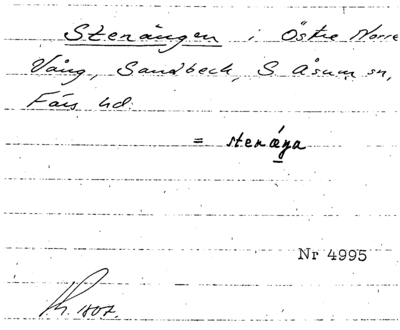 Stenängen i Östre Norre
Vång, Sandbeck, S Åsum sn,
Färs hd.
= stenæŋa
Nr 4995